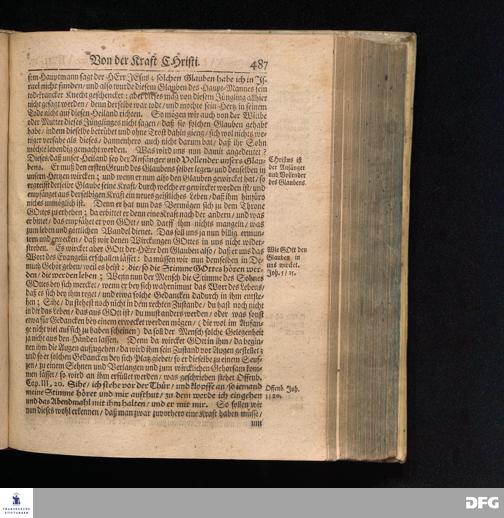 Von der Krafft CHristi. 487
sem Hauptmann sagt der HErr JEsus; solchen Glauben habe ich in Is-
rael nicht funden/ und also wurde diesem Glauben des Haupt-Mannes sein
todt-krancker Knecht geschencket: aber dieses mag von diesem Jüngling allhier
nicht gesagt werden/ denn derselbe war todt/ und mochte sein Hertz in seinem
Tode nicht auf diesen Heiland richten. So mögen wir auch von der Witbe
der Mutter dieses Jünglinges nicht sagen/ daß sie solchen Glauben gehabt
habe/ indem dieselbe betrübt und ohne Trost dahin gieng/ sich wol nichts we-
niger versahe als dieses/ dannenhero auch nicht darum bat/ daß ihr Sohn
möchte lebendig gemacht werden. Was wird uns nun damit angedeutet?
Dieses/ daß unser Heiland sey der Anfänger und Vollender unsers Glau-
bens. Er muß den ersten Grund des Glaubens selber legen/ und denselben in
unsern Hertzen wircken; und wenn er nun also den Glauben gewircket hat/ so
ergreifft derselve Glaube seine Kraft/ durch welche er gewircket worden ist/ und
empfänget aus derselbigen Kraft ein neues geistliches Leben/ daß ihm hinführo
nichts unmüglich ist. Denn er hat nun das Vermögen sich zu dem Throne
GOttes zu erheben; da erbittet er denn eine Kraft nach der andern/ und was
er bittet/ das empfähet er von GOtt/ und darff ihm nichts mangeln/ was
zum Leben und göttlichen Wandel dienet. Das soll uns ja nun billig ermun-
tern und erwecken/ daß wir denen Wirckungen GOttes in uns nicht wider-
streben. Es wircket aber GOtt der HErr den Glauben also/ daß er uns das
Wort des Evangelii erschallen lässet: da müssen wir nun demselben in De-
muth Gehör geben/ weil es heißt: die/ so die Stimme GOttes hören wer-
den/ die werden leben; Wenn nun der Mensch die Stimme des Sohnes
GOttes bey sich mercket/ wenn er bey sich wahrnimmt das Wort des Lebens/
daß es sich bey ihm reget/ und etwa solche Gedancken dadurch in ihm entste-
hen; Sihe/ du stehest noch nicht in dem rechten Zustande/ du hast noch nicht
in dir das Leben/ das aus GOtt ist/ du must anders werden/ oder was sonst
etwa für Gedancken bey einem erwecket werden mögen/ (die wol im Anfan-
ge nicht viel auf sich zu haben scheinen) da soll der Mensch solche Gelegenheit
ja nicht aus den Händen lassen. Denn da wircket GOtt in ihm/ da begin-
net ihm die Augen aufzugehen/ da wird ihm sein Zustand vor Augen gestellet;
und so er solchen Gedancken bey sich Platz giebet/ so er dieselbe zu einem Seuf-
zen/ zu einem Sehnen und Verlangen und zum wircklichen Gehorsam kom-
men lässet/ so wird an ihm erfüllet werden/ was geschrieben stehet Offenb.
Cap. III, 20. Sihe/ ich stehe vor der Thür/ und klopffe an/ so iemand
meine Stimme höret und mir aufthut/ zu dem werde ich eingehen
und das Abendmahl mit ihm halten/ und er mit mir. So sollen wir
nun dieses wohl erkennen/ daß man zwar zuvorhero eine Kraft haben müsse/
um
Christus ist
der Anfänger
und Vollender
des Glaubens.
Wie GOtt den
Glauben in
uns wircket.
Joh. 5/ 25.
Offenb. Joh.
3/ 20.
FRANCKESCHE
STIFTUNGEN
DFG